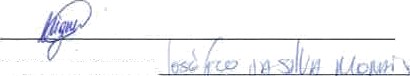 José Fco DA SILVA MORAIS